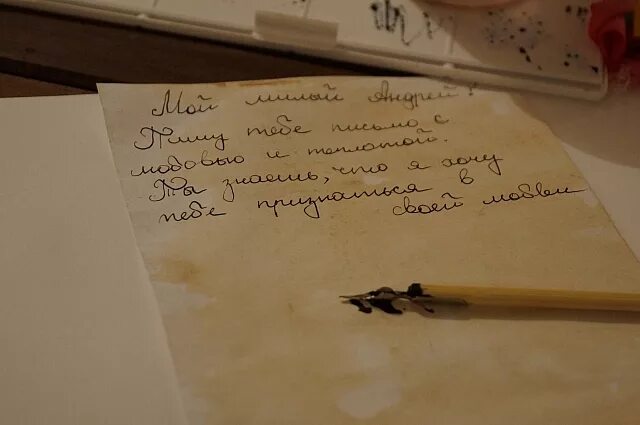 Мой милый Андрей!
Пишу тебе письмо с
любовью и теплотой.
Ты знаешь, что я хочу
тебе признаться в
своей любви